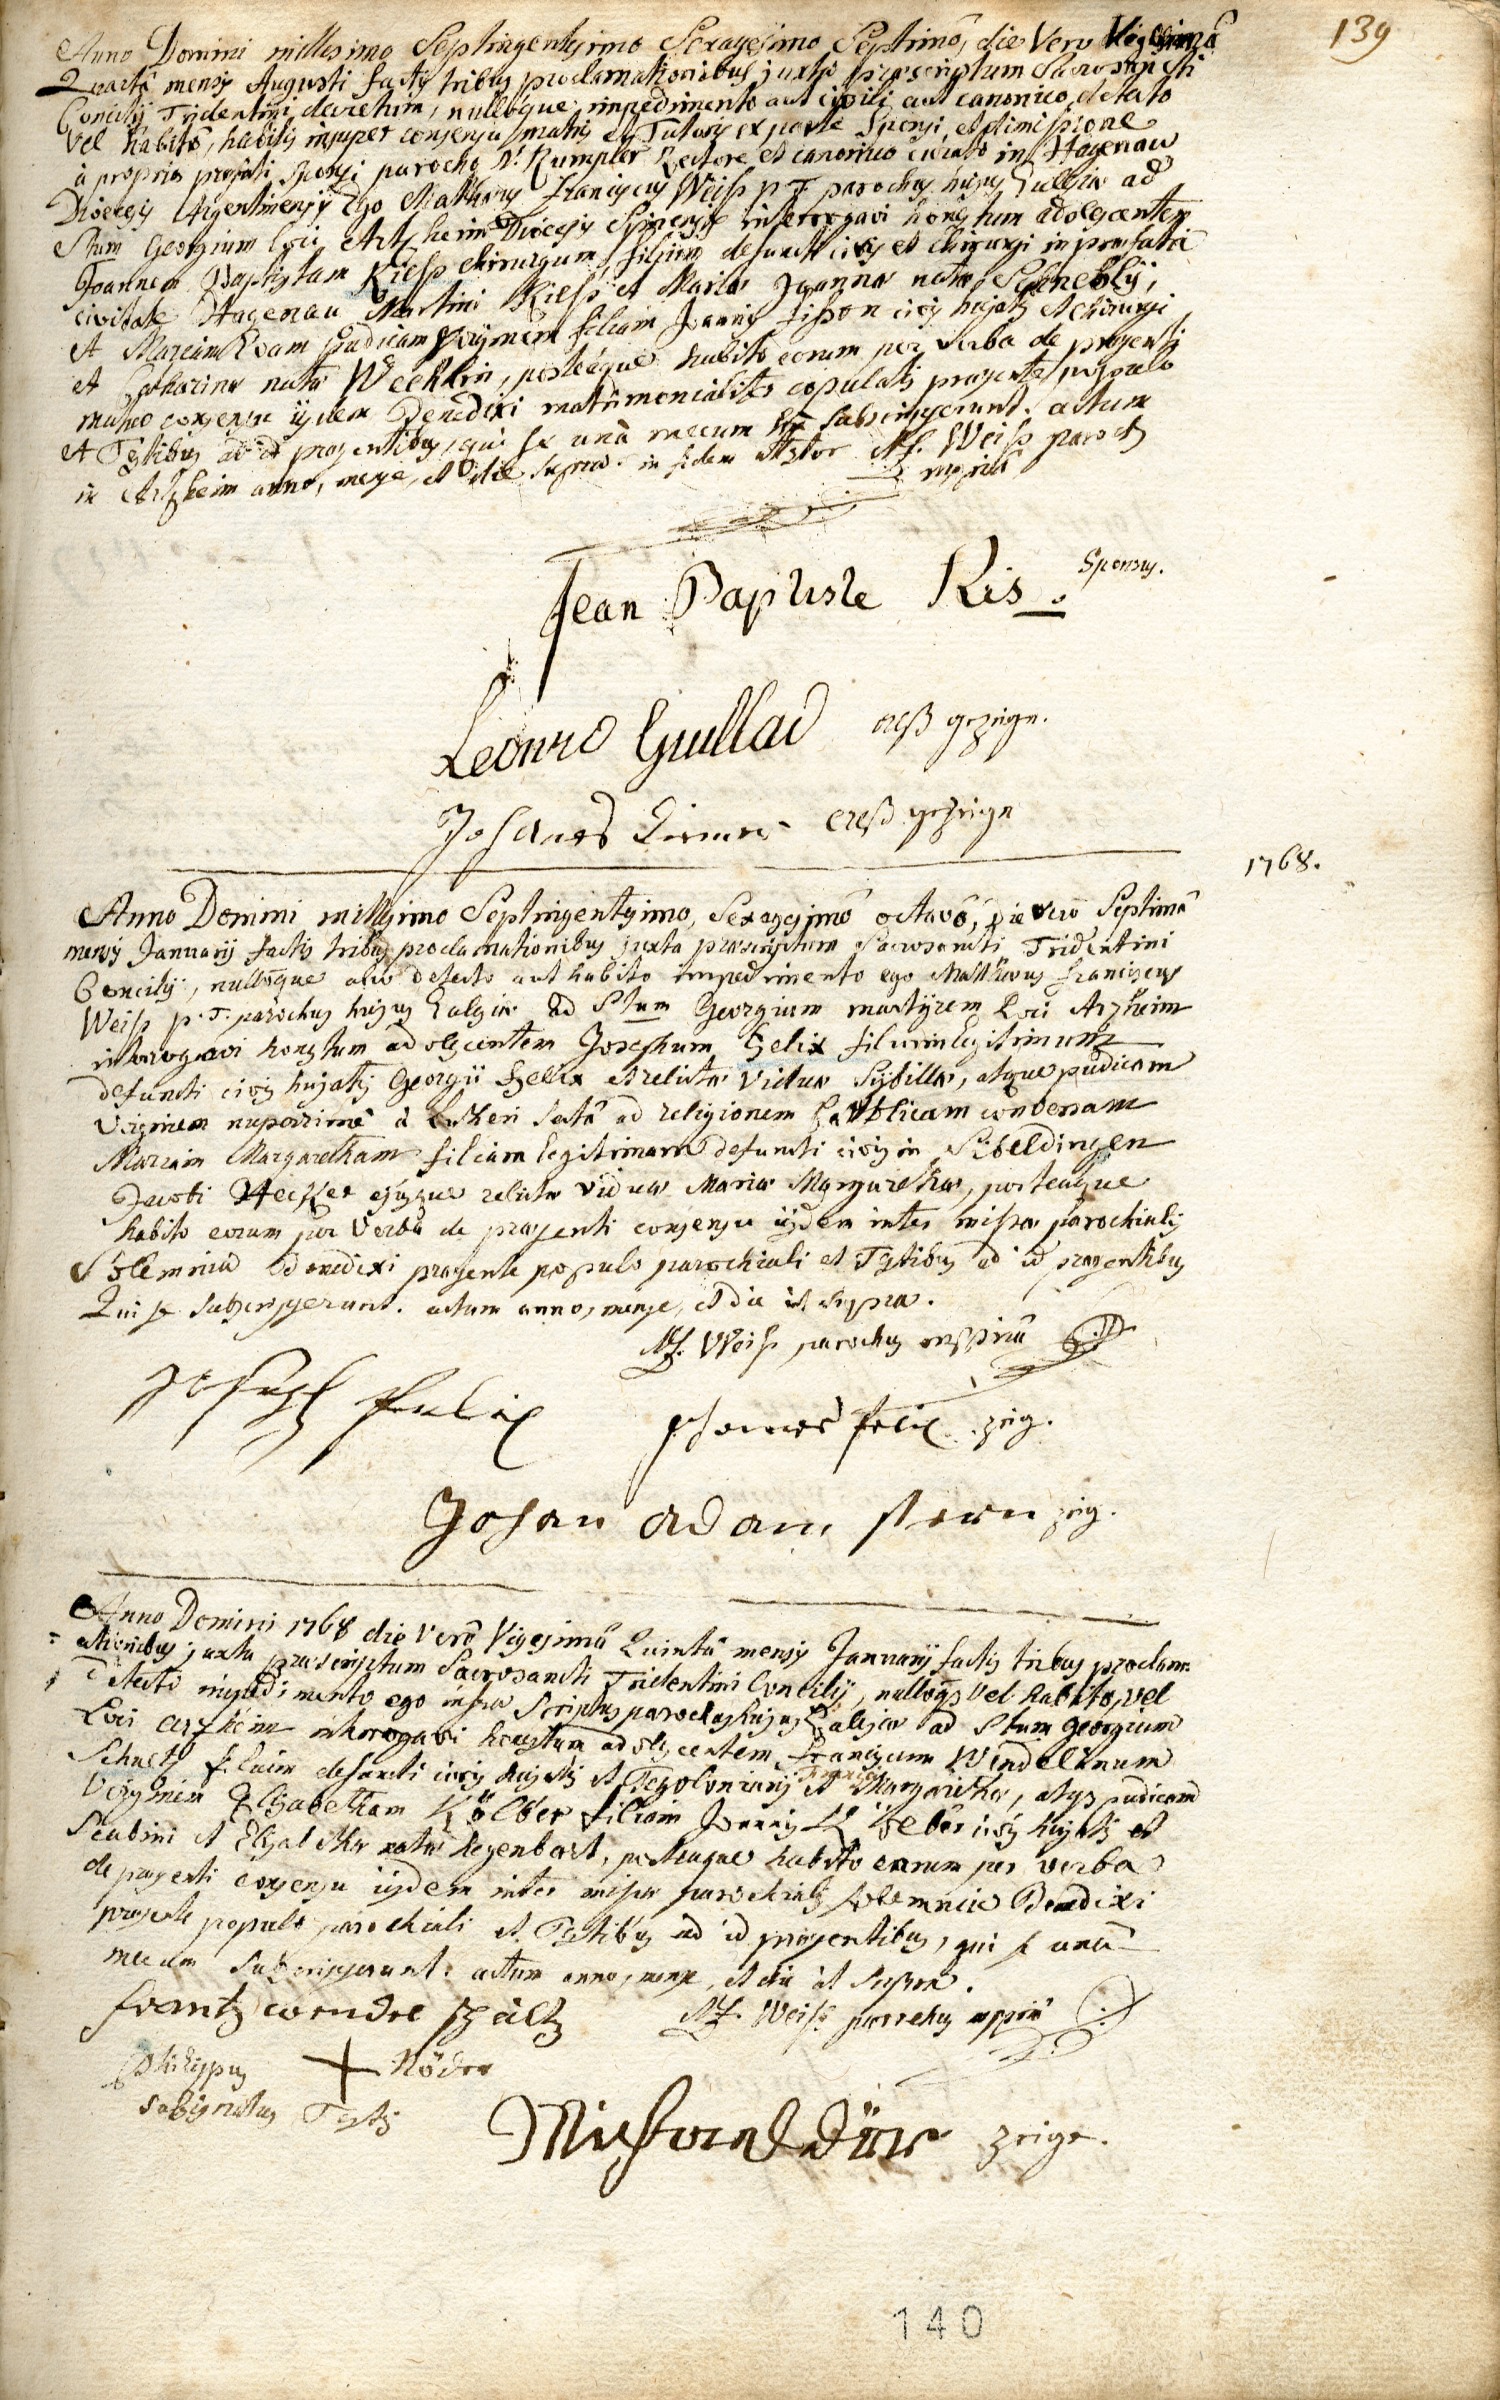 139
Anno Domini millesimo Septingentesimo Sexagesimo Septimô, die Vero Vigesimâ
Quartâ mensis Augusti factis tribus proclamationibus juxta praescriptum Sacrosancti
Concilij Tridentini decretum, nullôque impedimento aut civili aut canonico detecto
vel habito, habitis insuper consensu matris et Tutoris ex parte Sponsi, et dimissione
à proprio praefati Sponsi parocho D. Rumpler Rectore et canonico curato in Hagenau
Dioecesis Argentinensis Ego Matthaeus Franciscus Weiss p. t. parochus hujus Ecclesiae ad
Stum Georgium loci Artzheim Dioecesis Spirensis interrogavi honestum adolescentem
Joannem Baptistam Kiess chirurgum, filium defuncti civis et chirurgi in praefatâ
civitate Hagenau Martini Kiess et Mariae Joannae natae Schneblij,
et Mariam Evam pudicam virginem filiam Joannis Fisson civis hujatis et chirurgi
et Catharinae natae Wecklin, posteáque habito eorum per verba de praesenti
mutuo consensu ijsdem Benedixi matrimonialiter copulatis praesente populo
et Testibus ad id praesentibus, qui se unà mecum subscripserunt. actum
in Artzheim anno, mense, et die supra. in fidem attestor M. F. Weiss paroch
mppriâ
Jean Baptiste Kis Sponsus.
Leonrd Guillad gezeige.
Johanes gezeige
1768.
Anno Domini millesimo Septingentesimo, Sexagesimô octavô, die vero Septimâ
mensis Januarij factis tribus proclamationibus juxta praescriptum Sacrosancti Tridentini
Concilij, nullôque aut detecto aut habito impedimento ego Matthaeus Franciscus
Weiss p. T. parochus hujus Ecclesiae ad Stum Georgium martijrem loci Arzheim
interrogavi honestum adolescentem Josephum Felix filium legitimum
defuncti civis hujatis Georgii Felix et relictae viduae Sijbillae, atque pudicam
Virginem nuperrimè à Lutheri sectâ ad religionem Catholicam conversam
Mariam Margaretham filiam legitimam defuncti civis in Sibeldingen
Jacobi Hecker ejusque relictae viduae Mariae Margarethae, posteaque
habito eorum per verba de praesenti consensu ijsdem inter missae parochialis
Solemnia Benedixi praesente populo parochiali et Testibus ad id praesentibus
Qui se subscripserunt. actum anno, mense, et die ut supra.
M. F. Weiss parochus mppriâ
Joseph Felix
Felix zeig.
Johan adam stern zeig.
Anno Domini 1768 die Verô Vigesimâ Quintâ mensis Januarij factis tribus proclam
ationibus juxta praescriptum Sacrosancti Tridentini Concilij, nullôqs vel habito, vel
detecto impedimento ego infra Scriptus parochus hujus Ecclesiae ad Stum Georgium
Loci Arzheim interrogavi honestum adolescentem Franciscum Wendelinum
Schaltz filium defuncti civis hujatis et Teglonarij Francisci et Margarethae, atqs pudicam
Virginem Elisabetham Kölber filiam Joannis Kölber civis hujatis et
Scabini et Elisabethae natae Hegenbart, posteaque habito eorum per verba
de praesenti consensu ijsdem inter missae parochialis solemnia Benedixi
praesente populo parochiali et Testibus ad id praesentibus, qui se unà
mecum subscripserunt. actum anno, mense, et die ut supra.
frantz wendel schaltz
M. F. Weiss parochus mppriâ
Philippus + Röder
subsignatus Testis
Michael dür zeige.
140